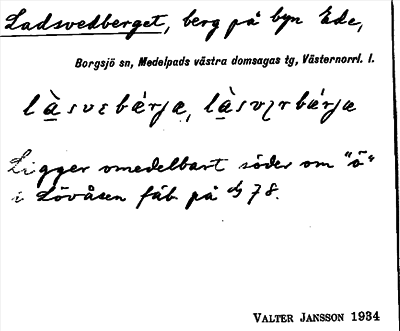 Ladsvedberget, berg på byn Ede,
Borgsjö sn, Medelpads västra domsagas tg, Västernorrl. l.
là̱svɛbárjæ, là̱svɩrbárjæ
Ligger omedelbart söder om "ö"
i Lövåsen fäb. på 78.
VALTER JANSSON 1934